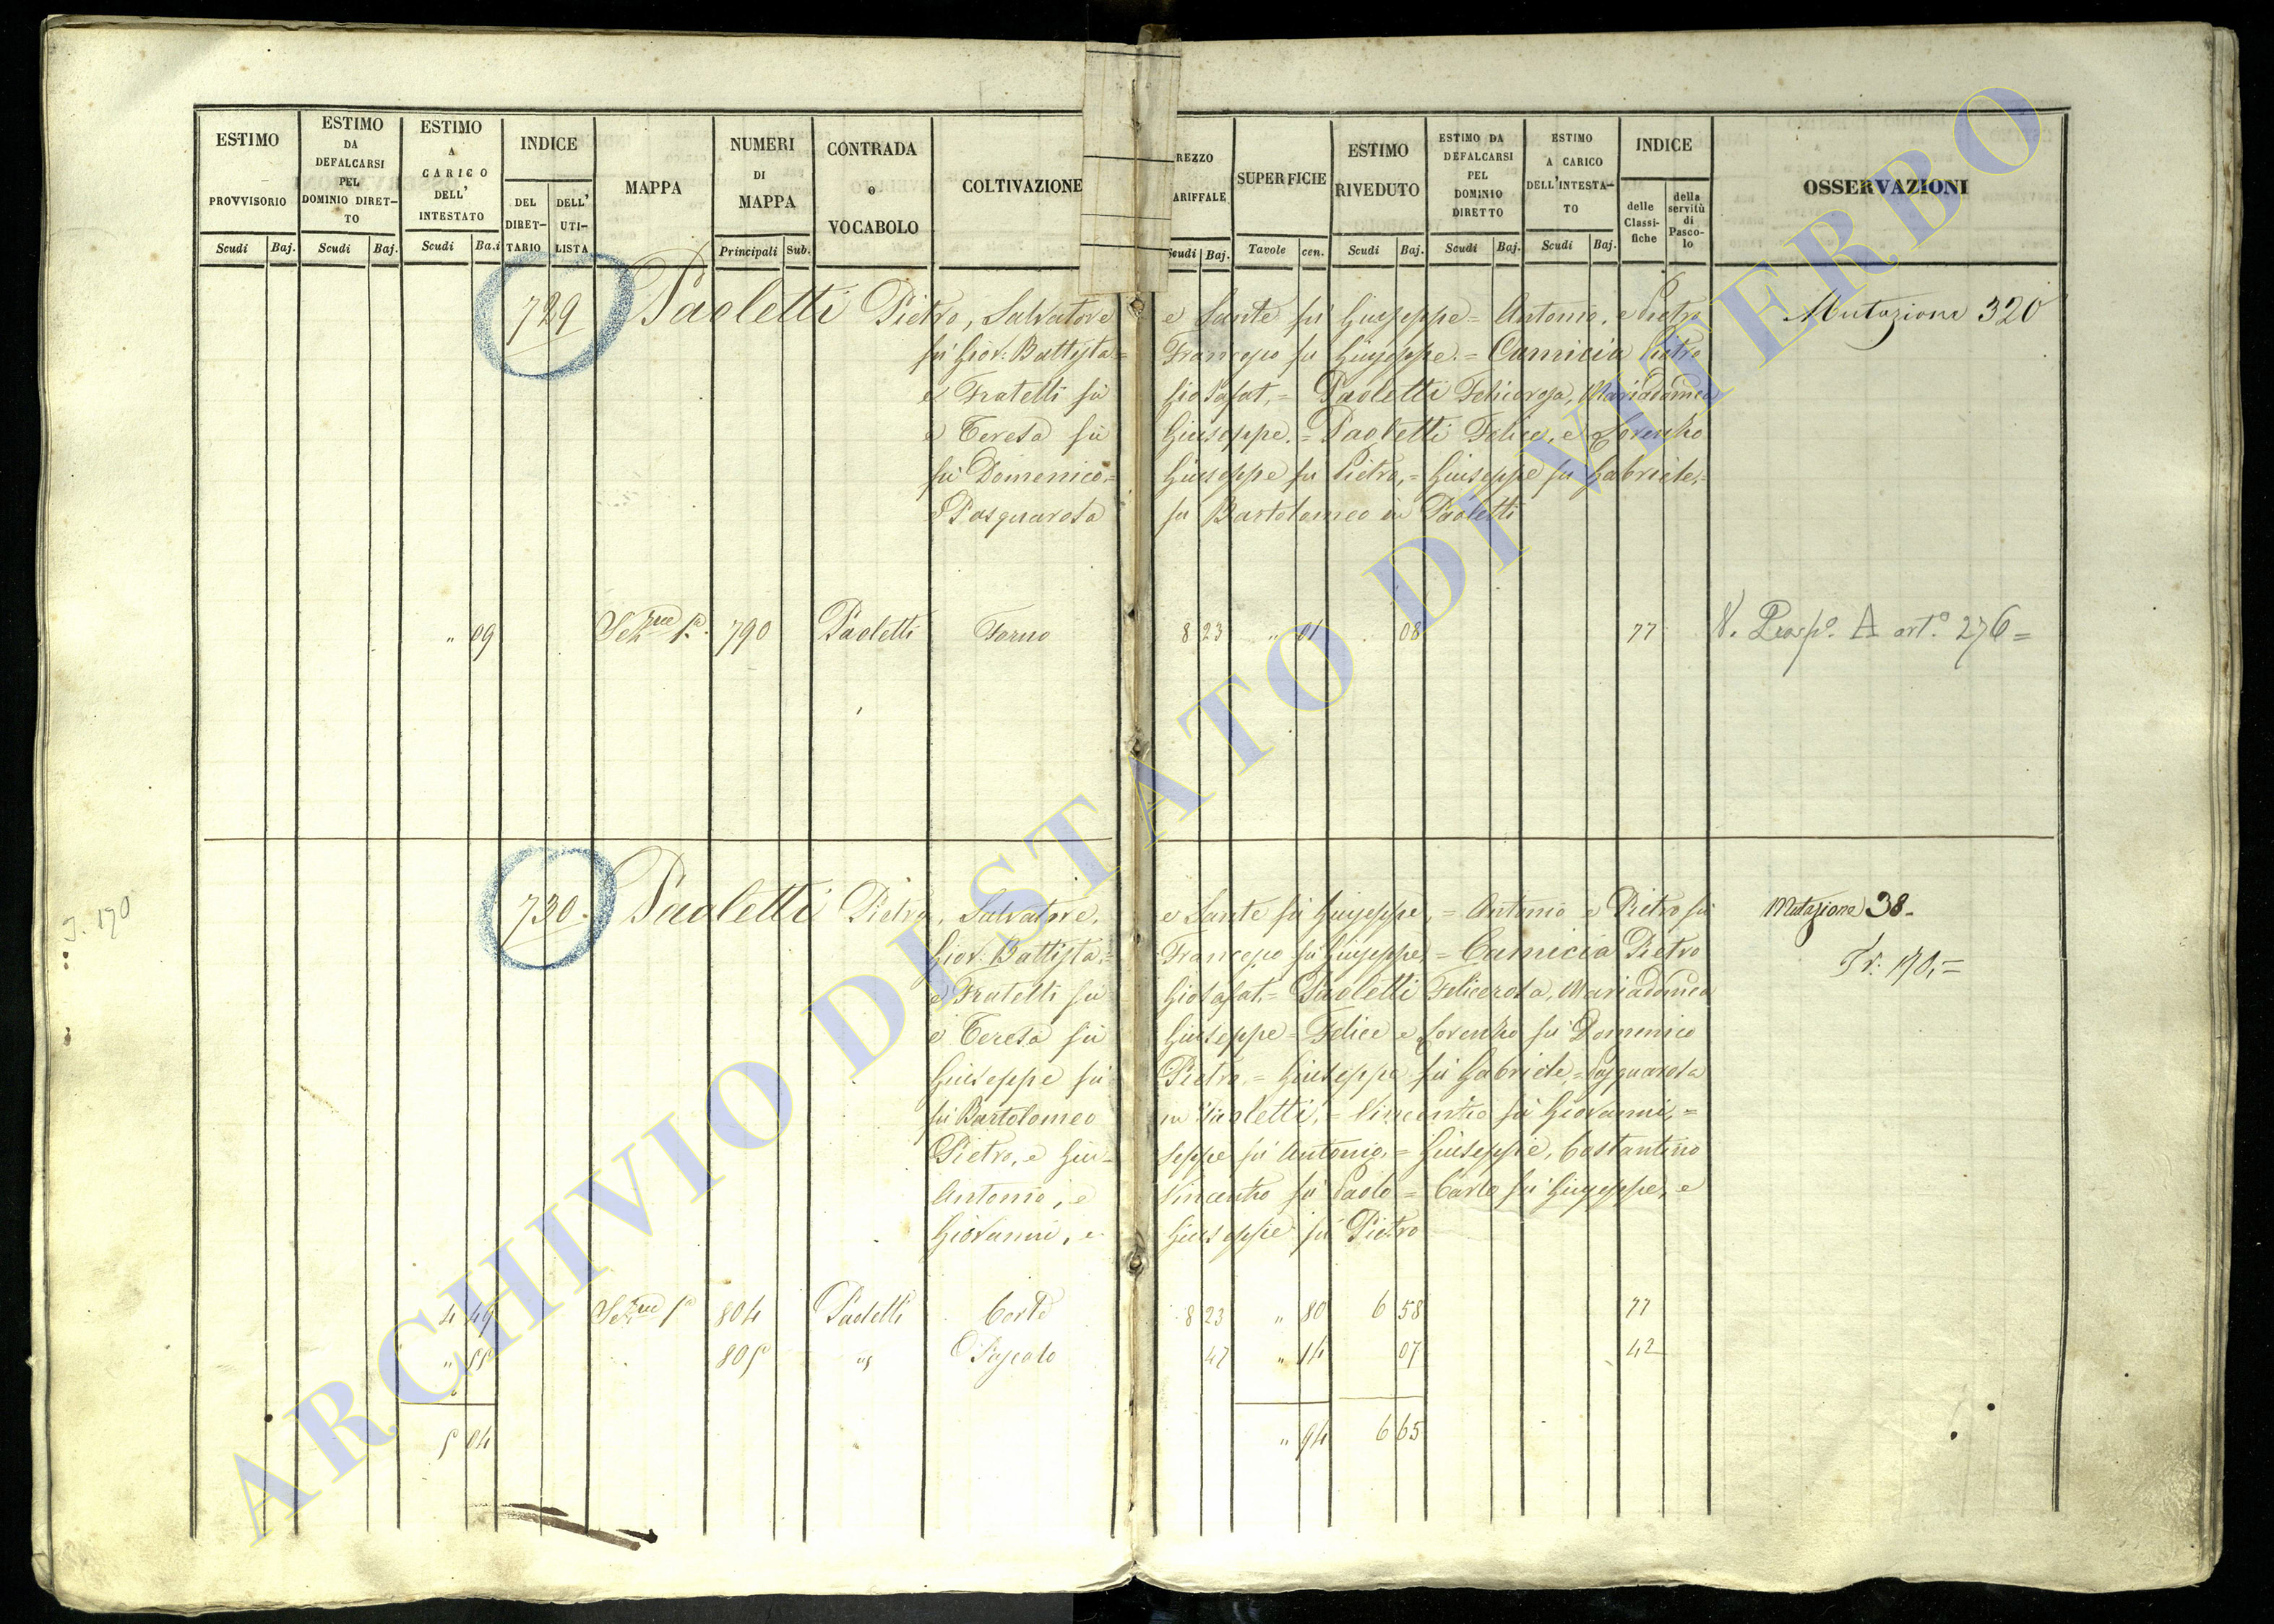 ESTIMO PROVVISORIO
Scudi Baj.
ESTIMO DA DEFALCARSI PEL DOMINIO DIRET-TO
Scudi Baj.
ESTIMO A CARICO DELL' INTESTATO
Scudi Ba.i
INDICE
DEL DIRET-TARIO
DELL' UTI-LISTA
MAPPA
NUMERI DI MAPPA
Principali Sub.
CONTRADA o VOCABOLO
COLTIVAZIONE
REZZO ARIFFALE
Scudi Baj.
SUPERFICIE
Tavole cen.
ESTIMO RIVEDUTO
Scudi Baj.
ESTIMO DA DEFALCARSI PEL DOMINIO DIRETTO
Scudi Baj.
ESTIMO A CARICO DELL'INTESTA-TO
Scudi Baj.
INDICE
delle Classi-fiche
della servitù di Pasco-lo
OSSERVAZIONI
729 Paoletti Pietro, Salvatore e Sante fu Giuseppe = Antonio, e Pietro Mutazione 320
fu Giov: Battista = Francesco fu Giuseppe. = Camicia Pietro
e Fratelli fu Giosafat, = Paoletti Felicerosa, Mariadomca
e Teresa fu Giuseppe. = Paoletti Felice, e Lorenzo
fu Domenico, = Giuseppe fu Pietro, = Giuseppe fu Gabriele, =
e Pasquarosa fu Bartolomeo in Paoletti
" 09 Sezne 1a. 790 Paoletti Forno 8 23 " 01 08 77 V. Prosp. A art.o 276 =
730. Paoletti Pietro, Salvatore, e Sante fu Giuseppe, = Antonio e Pietro fu Mutazione 38.
Giov: Battista, = Francesco fu Giuseppe, = Camicia Pietro Tr: 170, =
e Fratelli fu Giosafat, = Paoletti Felicerosa, Mariadomca
e Teresa fu Giuseppe = Felice e Lorenzo fu Domenico
Giuseppe fu Pietro = Giuseppe fu Gabriele, = Pasquarosa
fu Bartolomeo in Paoletti, = Vincenzo fu Giovanni, =
Pietro, e Giu- seppe fu Antonio, = Giuseppe, Costantino
Antonio, e Vincenzo fu Paolo = Carlo fu Giuseppe, e
Giovanni, e Giuseppe fu Pietro
4 49 Sezne 1a 804 Paoletti Corte 8 23 " 80 6 58 77
" 55 805 Pascolo 47 " 14 07 42
5 04 " 94 6 65
170
ARCHIVIO DI STATO DI VITERBO